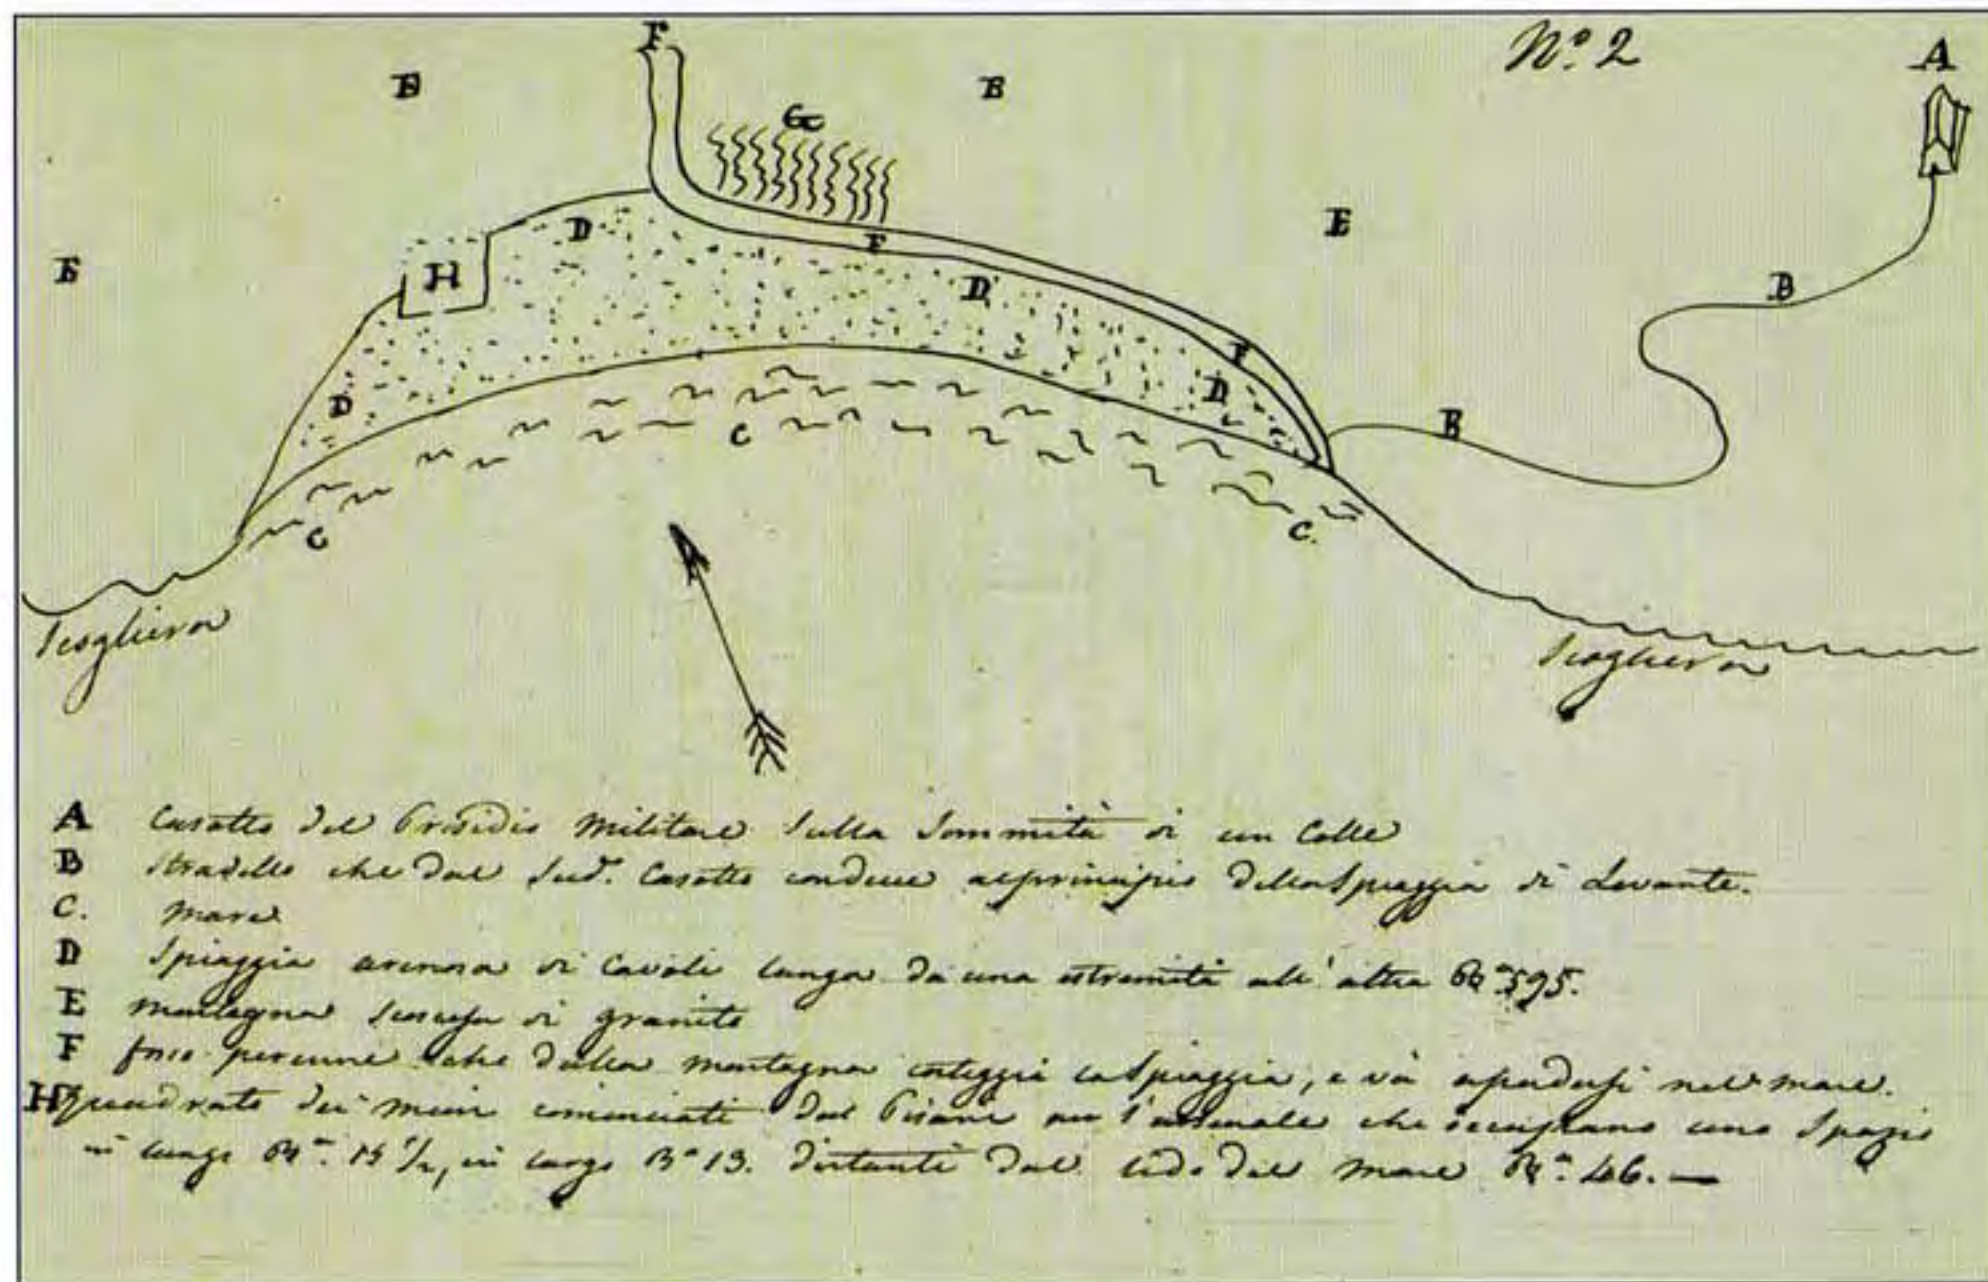 F
N.º 2
A
E
E
G
D
F
E
E
H
D
B
F
D
D
B
C
C
C.
Scogliera
Scogliera
A Casotto del Presidio Militare sulla Sommità di un Colle
B Stradello che dal sud.º Casotto conduce al principio della Spiaggia di Levante.
C. Mare
D Spiaggia arenosa di Cavoli lunga da una estremità all'altra Bª 595.
E Montagna scoscesa di granito
F fosso perenne che dalla Montagna costeggia la Spiaggia, e và a perdersi nel mare.
H Quadrato dei muri cominciati dal Pisani per l'arsenale che occupano uno Spazio
in lungo Bª. 15 1/2, in largo Bª 13. distanti dal lido del mare Bª. 46. —